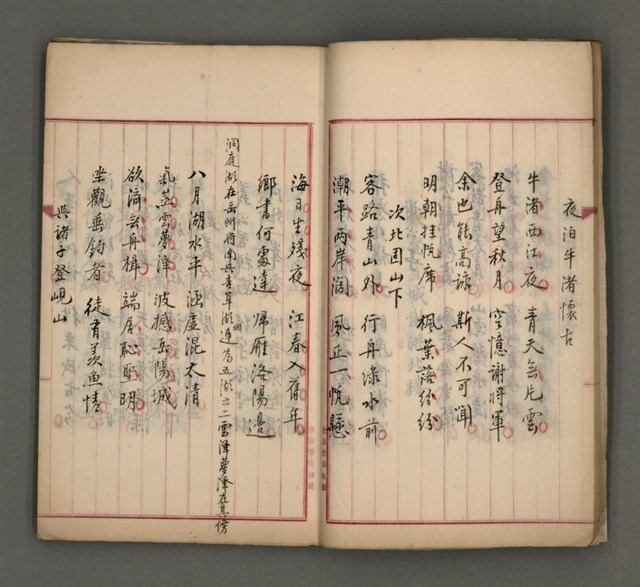 夜泊牛渚懷古
牛渚西江夜 青天無片雲
登舟望秋月 空憶謝將軍
余也能高詠 斯人不可聞
明朝挂帆席 楓葉落紛紛
次北固山下
客路青山外 行舟淥水前
潮平兩岸闊 風正一帆懸
海日生殘夜 江春入舊年
鄉書何處達 帰雁洛陽邊
洞庭湖在岳州府南與青草湖連為五湖之二雲澤夢澤在其傍
八月湖水平 涵虛混太清
氣蒸雲夢澤 波撼岳陽城
欲濟無舟楫 端居恥聖明
坐觀垂釣者 徒有羨魚情
與諸子登峴山